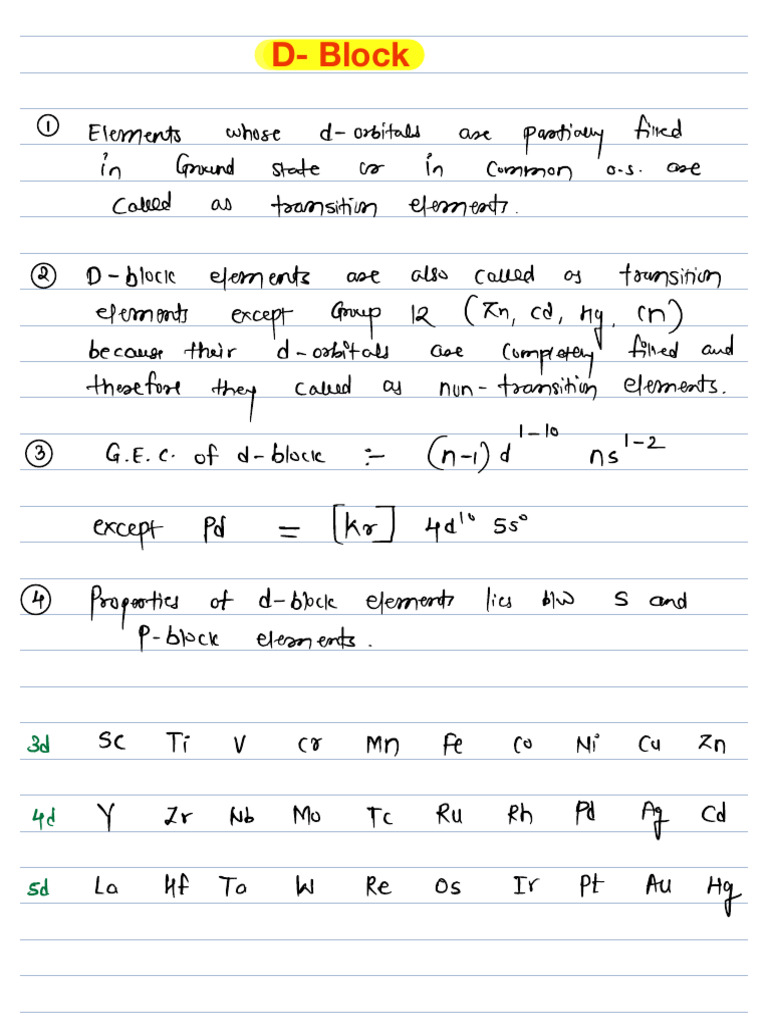 D- Block
① Elements whose d-orbitals are partially filled
in Ground state or in common o.s. are
Called as transition elements.
② D-block elements are also called as transition
elements except Group 12 (Zn, Cd, Hg, Cn)
because their d-orbitals are completely filled and
therefore they called as non-transition elements.
③ G.E.C. of d-block :- (n-1)d¹⁻¹⁰ ns¹⁻²
except Pd = [Kr] 4d¹⁰ 5s⁰
④ Properties of d-block elements lies b/w S and
P-block elements.
3d Sc Ti V Cr Mn Fe Co Ni Cu Zn
4d Y Zr Nb Mo Tc Ru Rh Pd Ag Cd
5d La Hf Ta W Re Os Ir Pt Au Hg